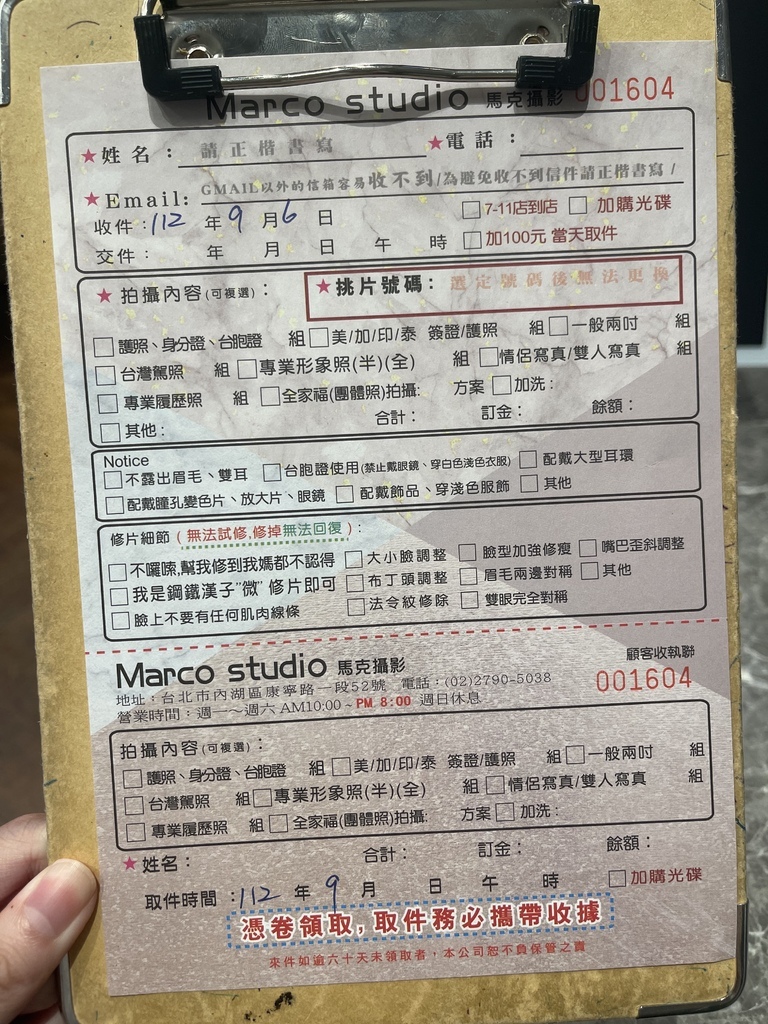 Marco studio 馬克攝影 001604
★姓名： 請正楷書寫 ★電話：
★Email: GMAIL以外的信箱容易收不到/為避免收不到信件請正楷書寫/
收件：112 年 9 月 6 日 □7-11店到店 □加購光碟
交件： 年 月 日 午 時 □加100元 當天取件
★拍攝內容(可複選)： ★挑片號碼：選定號碼後無法更換
□護照、身分證、台胞證 組 □美/加/印/泰 簽證/護照 組 □一般兩吋 組
□台灣駕照 組 □專業形象照(半)(全) 組 □情侶寫真/雙人寫真 組
□專業履歷照 組 □全家福(團體照)拍攝: 方案 □加洗：
□其他： 合計： 訂金： 餘額：
Notice
□不露出眉毛、雙耳 □台胞證使用(禁止戴眼鏡、穿白色淺色衣服) □配戴大型耳環
□配戴瞳孔變色片、放大片、眼鏡 □配戴飾品、穿淺色服飾 □其他
修片細節(無法試修,修掉無法回復)：
□不囉嗦,幫我修到我媽都不認得 □大小臉調整 □臉型加強修瘦 □嘴巴歪斜調整
□我是鋼鐵漢子"微"修片即可 □布丁頭調整 □眉毛兩邊對稱 □其他
□臉上不要有任何肌肉線條 □法令紋修除 □雙眼完全對稱
Marco studio 馬克攝影 顧客收執聯
地址：台北市內湖區康寧路一段52號 電話：(02)2790-5038 001604
營業時間：週一～週六 AM10:00~PM 8:00 週日休息
拍攝內容(可複選)：
□護照、身分證、台胞證 組 □美/加/印/泰 簽證/護照 組 □一般兩吋 組
□台灣駕照 組 □專業形象照(半)(全) 組 □情侶寫真/雙人寫真 組
□專業履歷照 組 □全家福(團體照)拍攝: 方案 □加洗：
★姓名： 合計： 訂金： 餘額：
取件時間：112 年 9 月 日 午 時 □加購光碟
憑卷領取,取件務必攜帶收據
來件如逾六十天未領取者，本公司恕不負保管之責